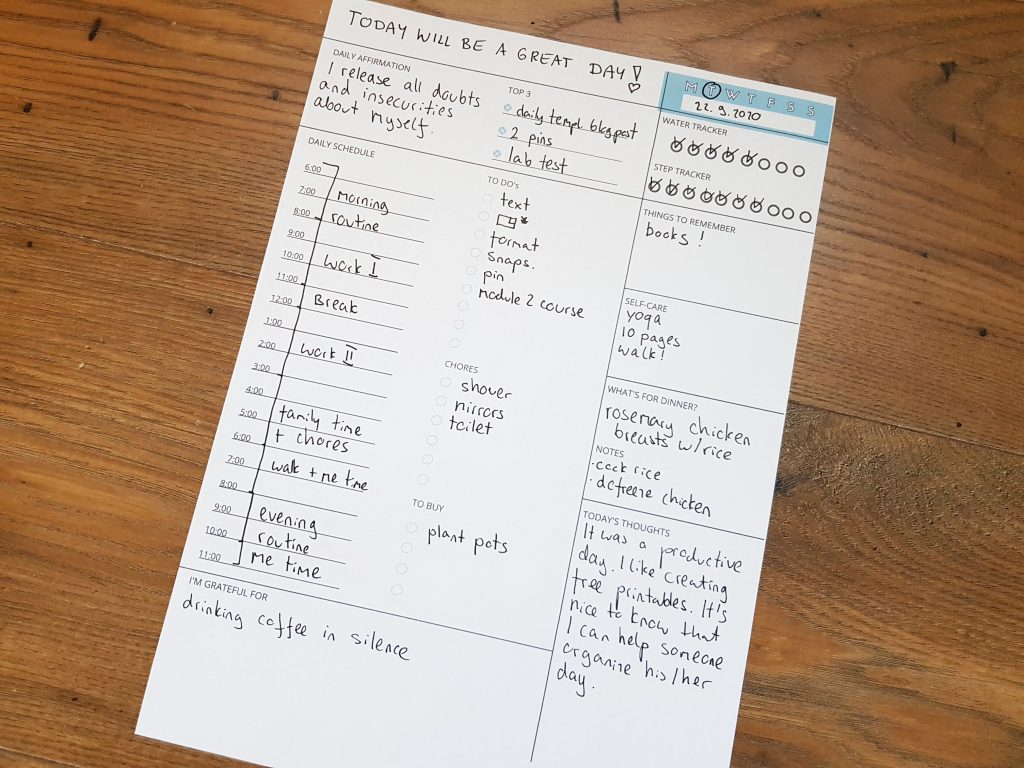 TODAY WILL BE A GREAT DAY!
DAILY AFFIRMATION
I release all doubts
and insecurities
about myself.
TOP 3
daily templ. blogpost
2 pins
lab test
M T W T F S S
22. 9. 2020
WATER TRACKER
STEP TRACKER
DAILY SCHEDULE
6:00
7:00
morning
8:00
routine
9:00
10:00
Work I
11:00
12:00
Break
1:00
2:00
Work II
3:00
4:00
5:00
family time
6:00
+ chores
7:00
walk + me time
8:00
9:00
evening
10:00
routine
11:00
me time
TO DO's
text
format
snaps.
pin
module 2 course
CHORES
shower
mirrors
toilet
TO BUY
plant pots
THINGS TO REMEMBER
books !
SELF-CARE
yoga
10 pages
walk!
WHAT'S FOR DINNER?
rosemary chicken
breasts w/rice
NOTES
·cook rice
·defreeze chicken
TODAY'S THOUGHTS
It was a productive
day. I like creating
free printables. It's
nice to know that
I can help someone
organize his/her
day.
I'M GRATEFUL FOR
drinking coffee in silence